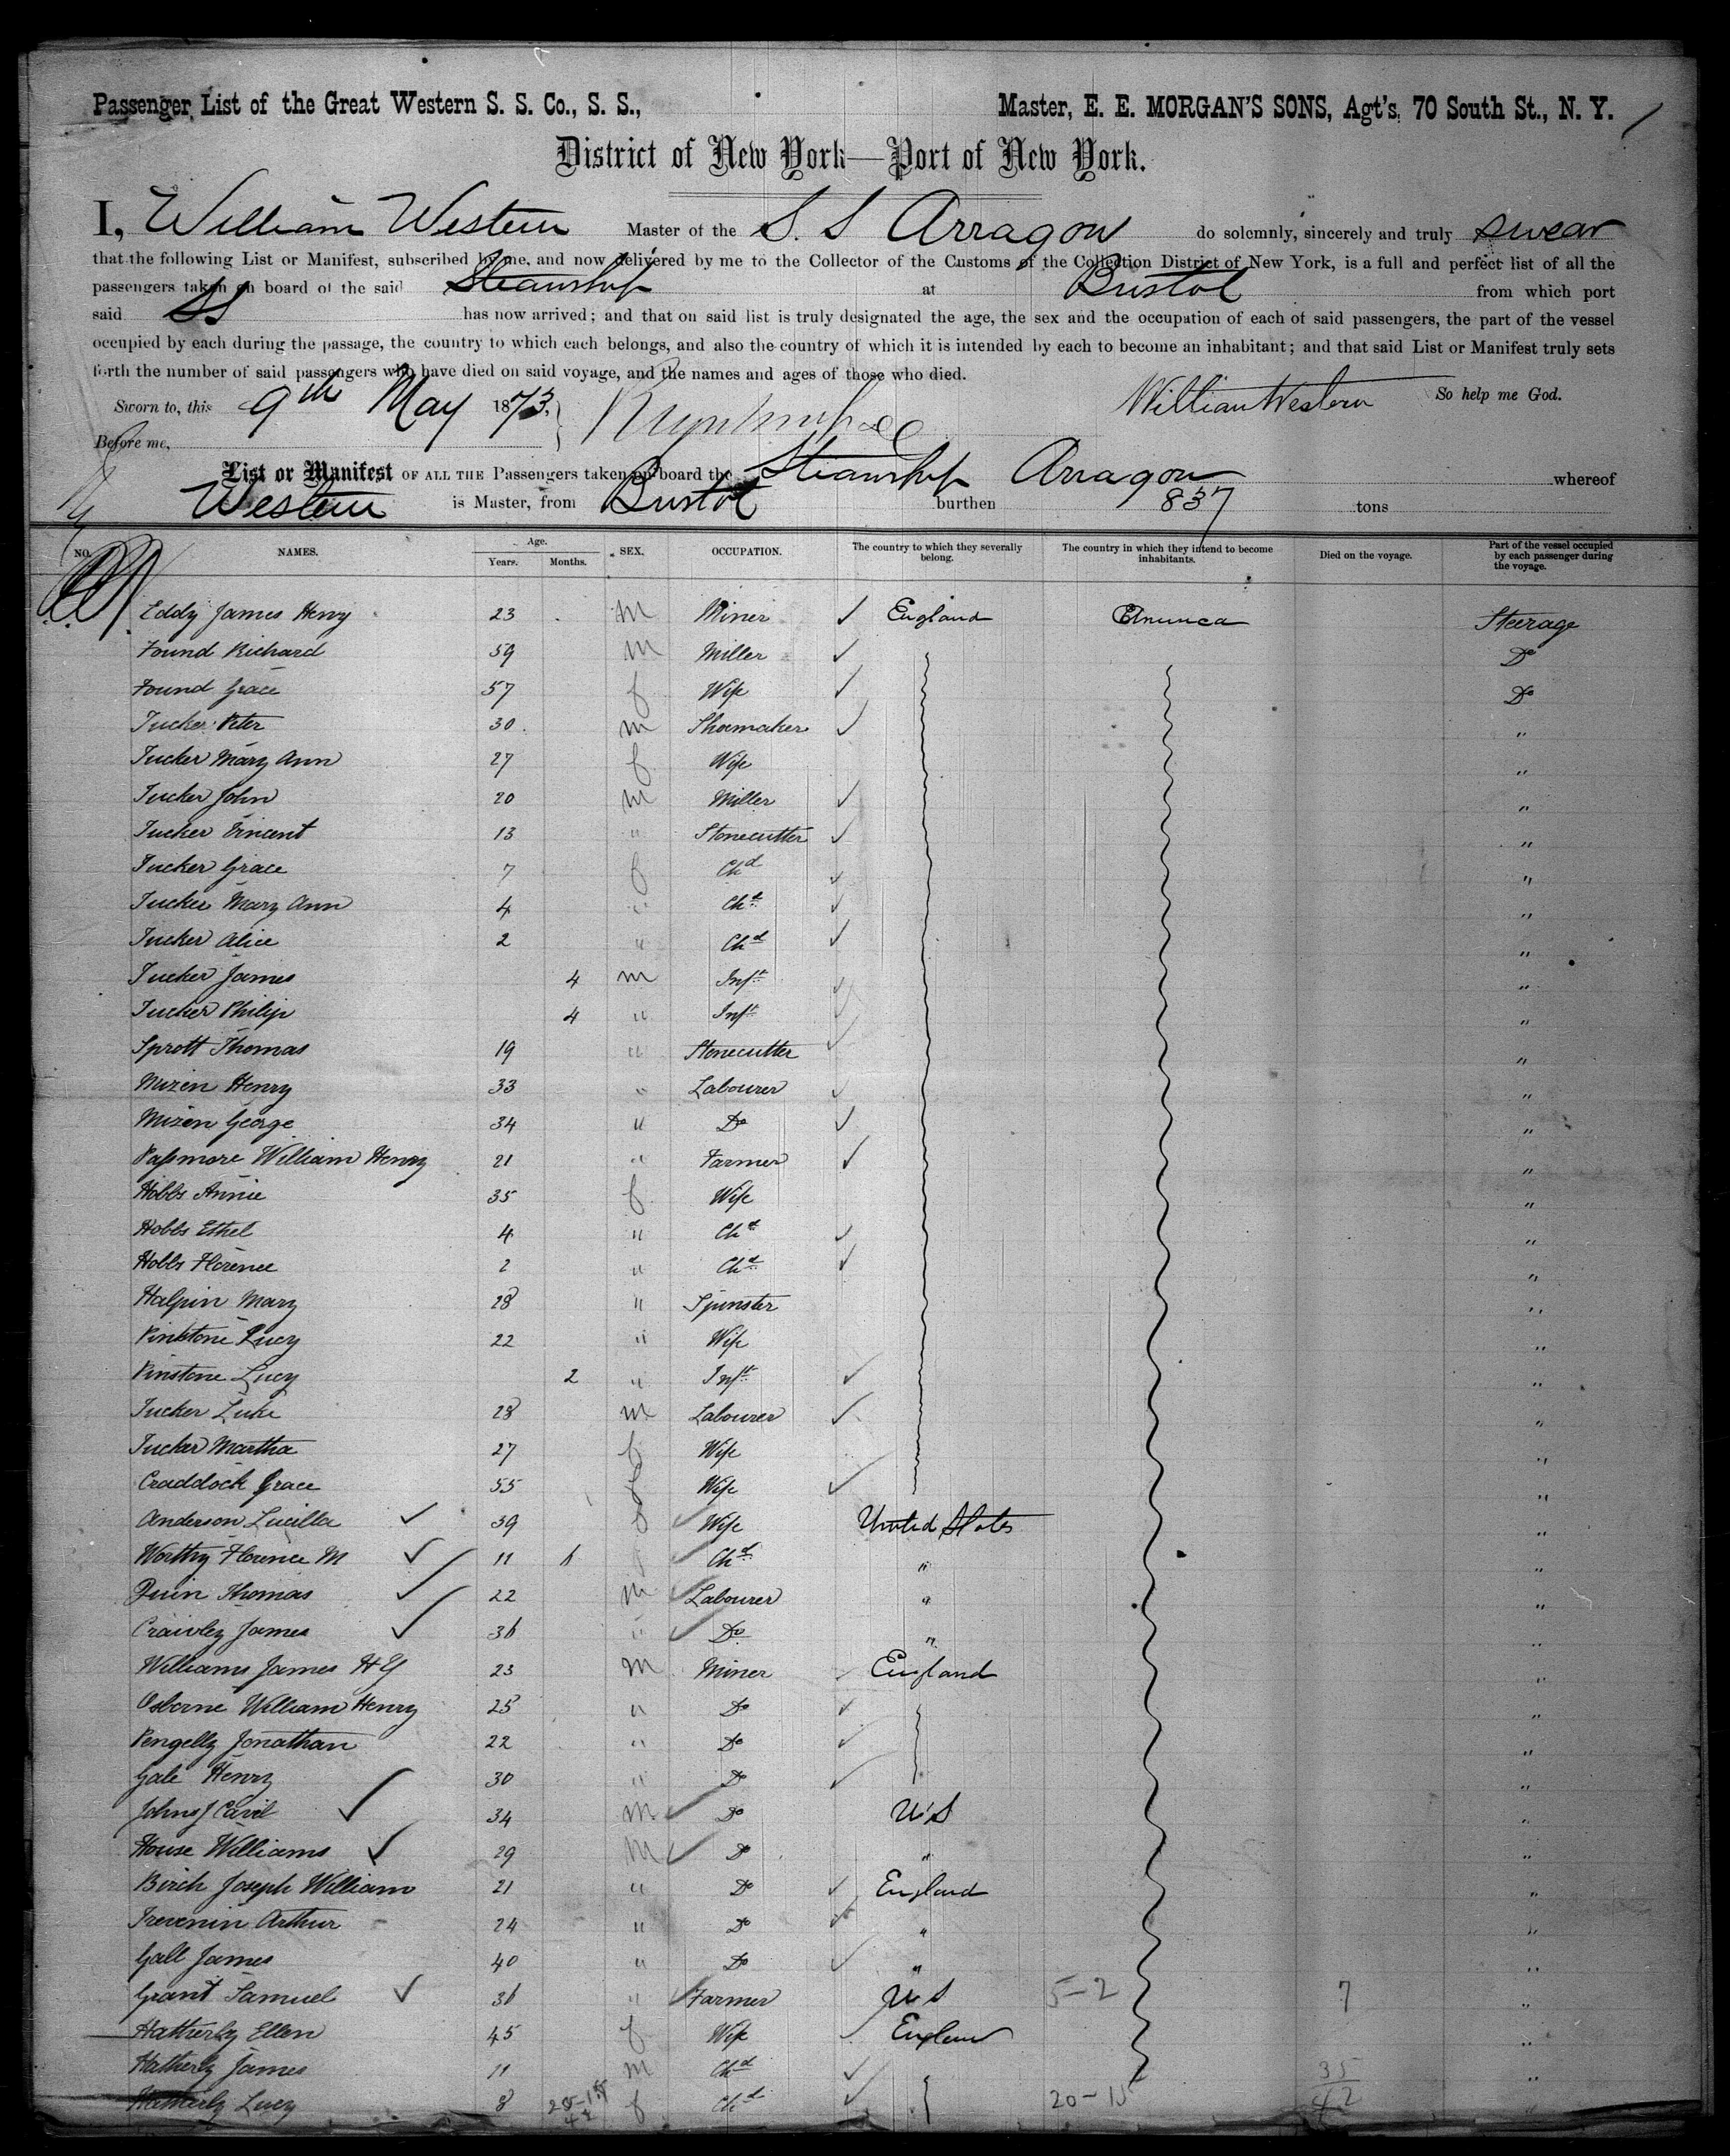 Passenger List of the Great Western S. S. Co., S. S., Master, E. E. MORGAN'S SONS, Agt's, 70 South St., N. Y.
District of New York—Port of New York.
I, William Western Master of the S. S Arragon do solemnly, sincerely and truly swear
that the following List or Manifest, subscribed by me, and now delivered by me to the Collector of the Customs of the Collection District of New York, is a full and perfect list of all the
passengers taken on board of the said Steamship at Bristol from which port
said SS has now arrived; and that on said list is truly designated the age, the sex and the occupation of each of said passengers, the part of the vessel
occupied by each during the passage, the country to which each belongs, and also the country of which it is intended by each to become an inhabitant; and that said List or Manifest truly sets
forth the number of said passengers who have died on said voyage, and the names and ages of those who died.
Sworn to, this 9th May 1873, William Western So help me God.
Before me,
List or Manifest OF ALL THE Passengers taken on board the Steamship Arragon whereof
Western is Master, from Bristol burthen 837 tons
NO. NAMES. Age. Years. Months. SEX. OCCUPATION. The country to which they severally belong. The country in which they intend to become inhabitants. Died on the voyage. Part of the vessel occupied by each passenger during the voyage.
Eddy James Henry 23 m Miner England America Steerage
Found Richard 59 m Miller Do
Found Grace 57 f Wife Do
Tucker Peter 30 m Shoemaker "
Tucker Mary Ann 27 f Wife "
Tucker John 20 m Miller "
Tucker Vincent 13 " Stonecutter "
Tucker Grace 7 f Chd "
Tucker Mary Ann 4 " Chd "
Tucker Alice 2 " Chd "
Tucker James 4 m Inft "
Tucker Philip 4 " Inft "
Sprott Thomas 19 " Stonecutter "
Mizen Henry 33 " Labourer "
Mizen George 34 " Do "
Passmore William Henry 21 " Farmer "
Hobbs Annie 35 f Wife "
Hobbs Ethel 4 " Chd "
Hobbs Florence 2 " Chd "
Halpin Mary 28 " Spinster "
Pinstone Lucy 22 " Wife "
Pinstone Lucy 2 " Inft "
Tucker Luke 28 m Labourer "
Tucker Martha 27 f Wife "
Craddock Grace 55 f Wife "
Anderson Lucilla 39 f Wife United States "
Worthy Florence M 11 6 f Chd " "
Quin Thomas 22 m Labourer " "
Crawley James 36 " Do " "
Williams James Hy 23 m Miner England "
Osborne William Henry 25 " Do "
Pengelly Jonathan 22 " Do "
Gale Henry 30 " Do "
Johns J Cavil 34 m Do U S "
House Williams 29 m Do " "
Birch Joseph William 21 " Do England "
Trevenin Arthur 24 " Do " "
Gall James 40 " Do " "
Grant Samuel 36 " Farmer U S 5-2 7 "
Hatherly Ellen 45 f Wife England "
Hatherly James 11 m Chd 35 "
Hatherly Lucy 8 f Chd 20-15 42 "